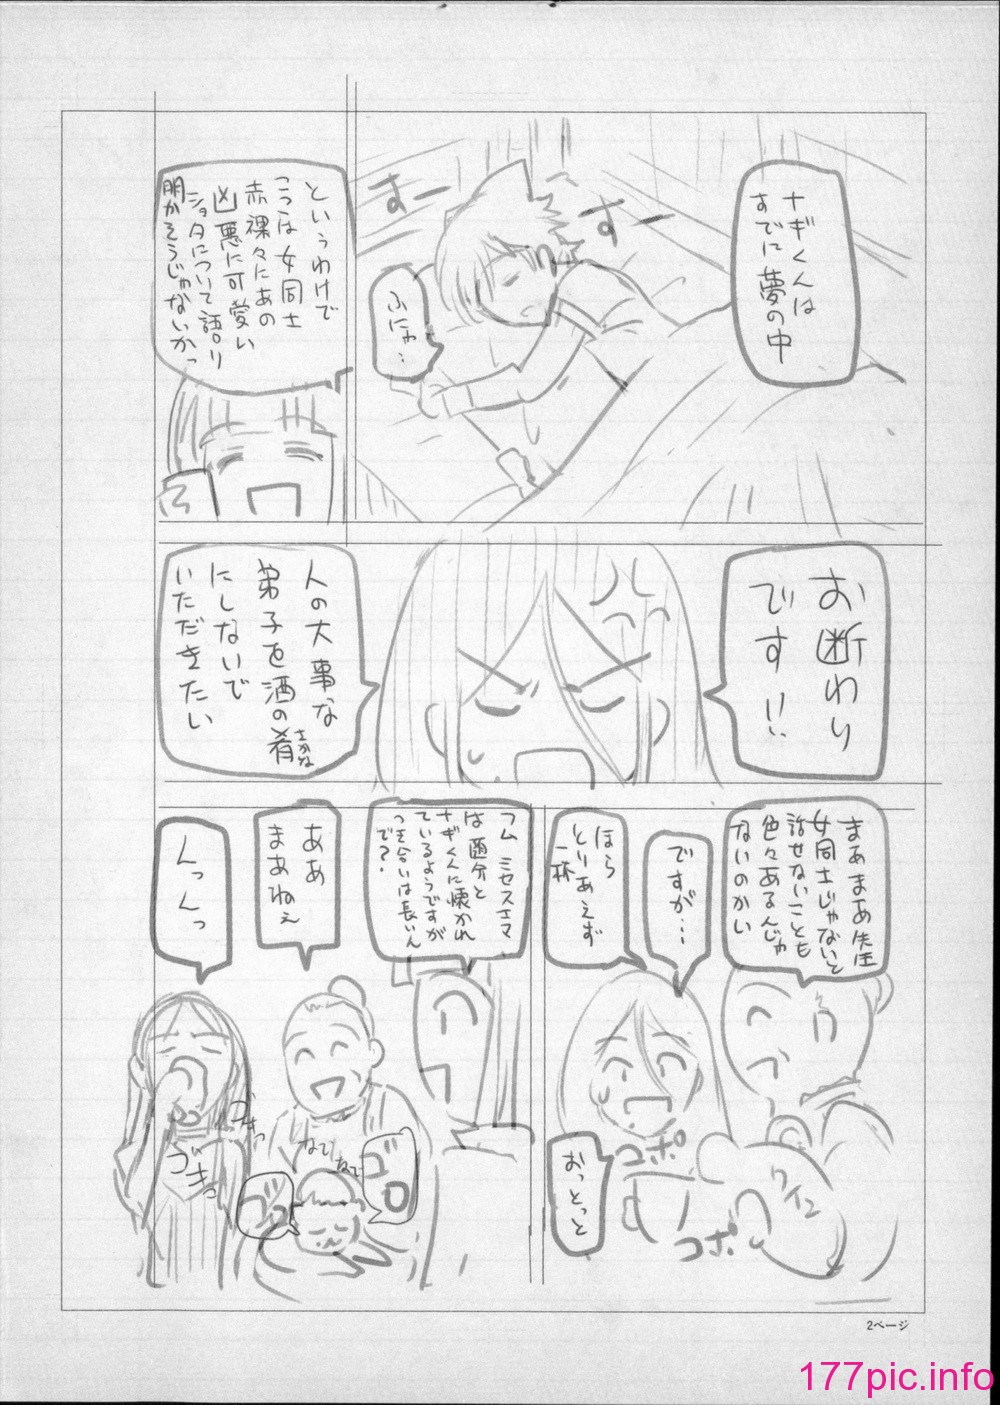 ナギくんは
すでに夢の中
すー
すー
ふにゃ…
というわけで
ここは女同士
赤裸々にあの
凶悪に可愛い
ショタについて語り
明かそうじゃないかっ
お断わり
です!!
人の大事な
弟子を酒の肴
さかな
にしないで
いただきたい
まぁまあ先生
女同士じゃないと
話せないことも
色々あるんじゃ
ないのかい
ですが…
ほら
とりあえず
一杯
おっとっと
コポ
コポ
ワイン
フム ミセスエマ
は随分と
ナギくんに懐かれ
ているようですが
つき合いは長いん
で?
ああ
まあねぇ
んっんっ
ごきっ
ごきっ
なで
なで
ゴロ
ゴロ
2ページ
177pic.info